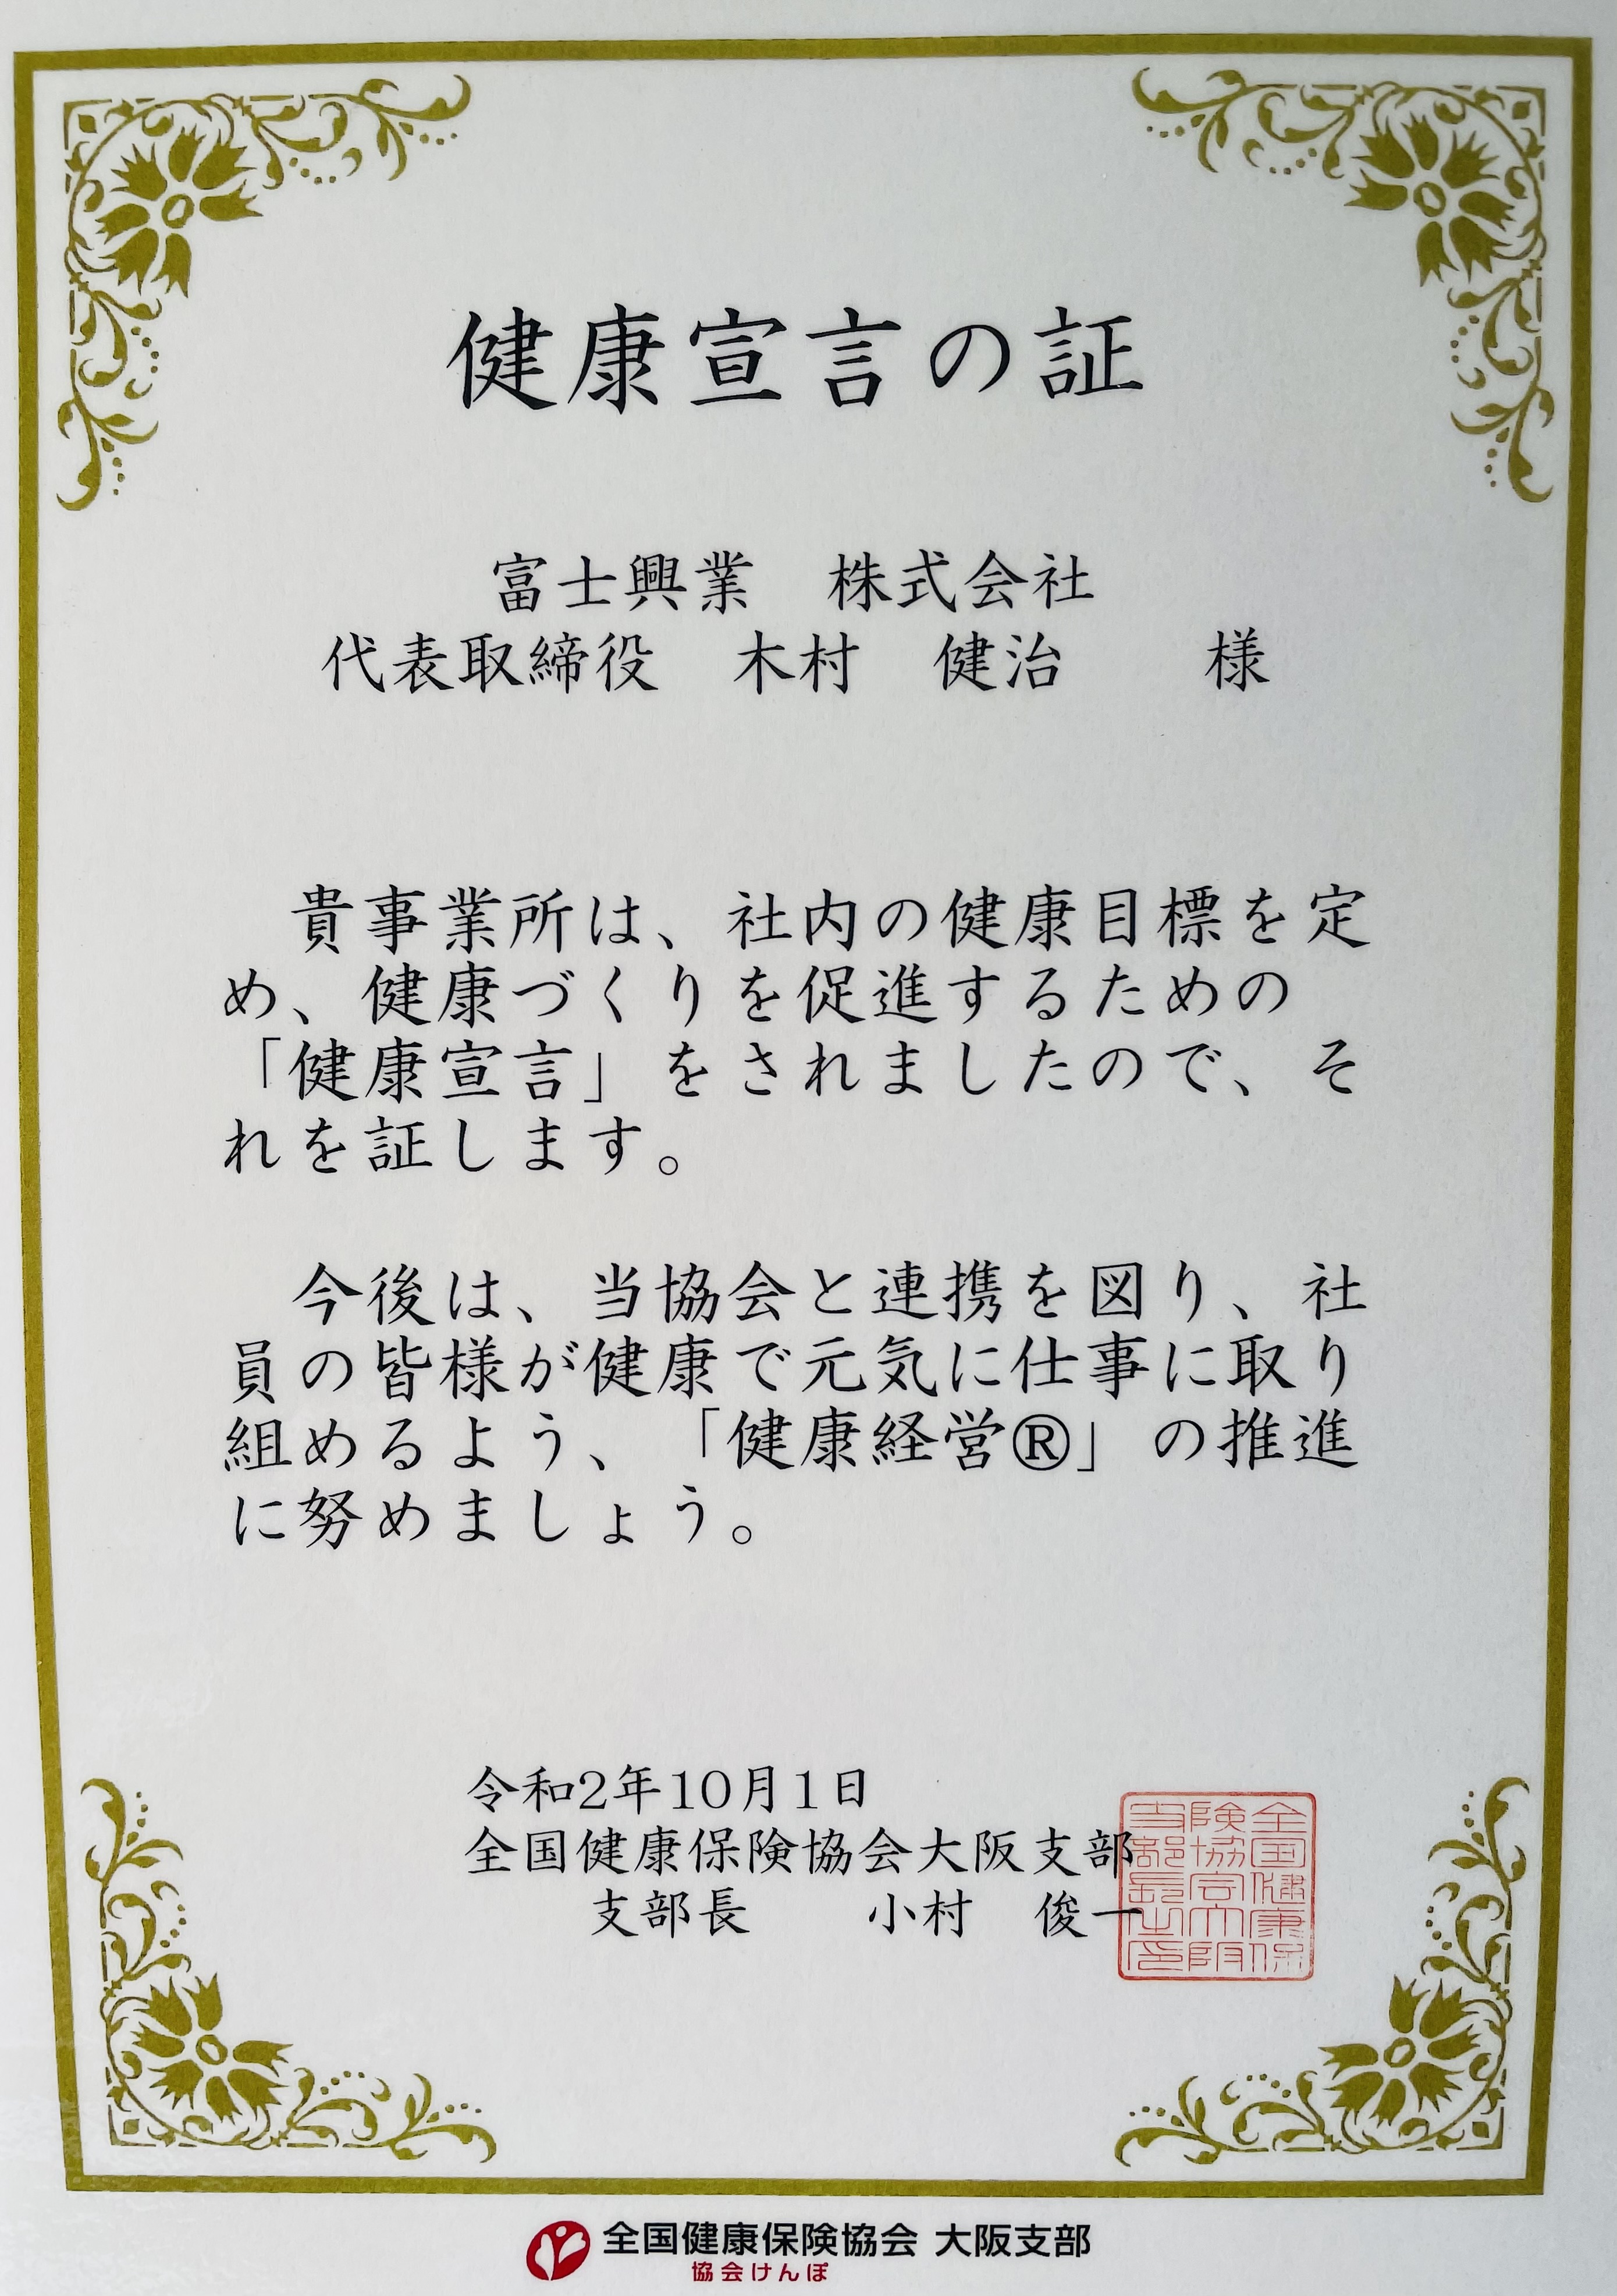 健康宣言の証
富士興業　株式会社
代表取締役　木村　健治　　様
貴事業所は、社内の健康目標を定
め、健康づくりを促進するための
「健康宣言」をされましたので、そ
れを証します。
今後は、当協会と連携を図り、社
員の皆様が健康で元気に仕事に取り
組めるよう、「健康経営®」の推進
に努めましょう。
令和2年10月1日
全国健康保険協会大阪支部
支部長　　小村　俊一
全国健康保
険協会大阪
支部長之印
全国健康保険協会 大阪支部
協会けんぽ